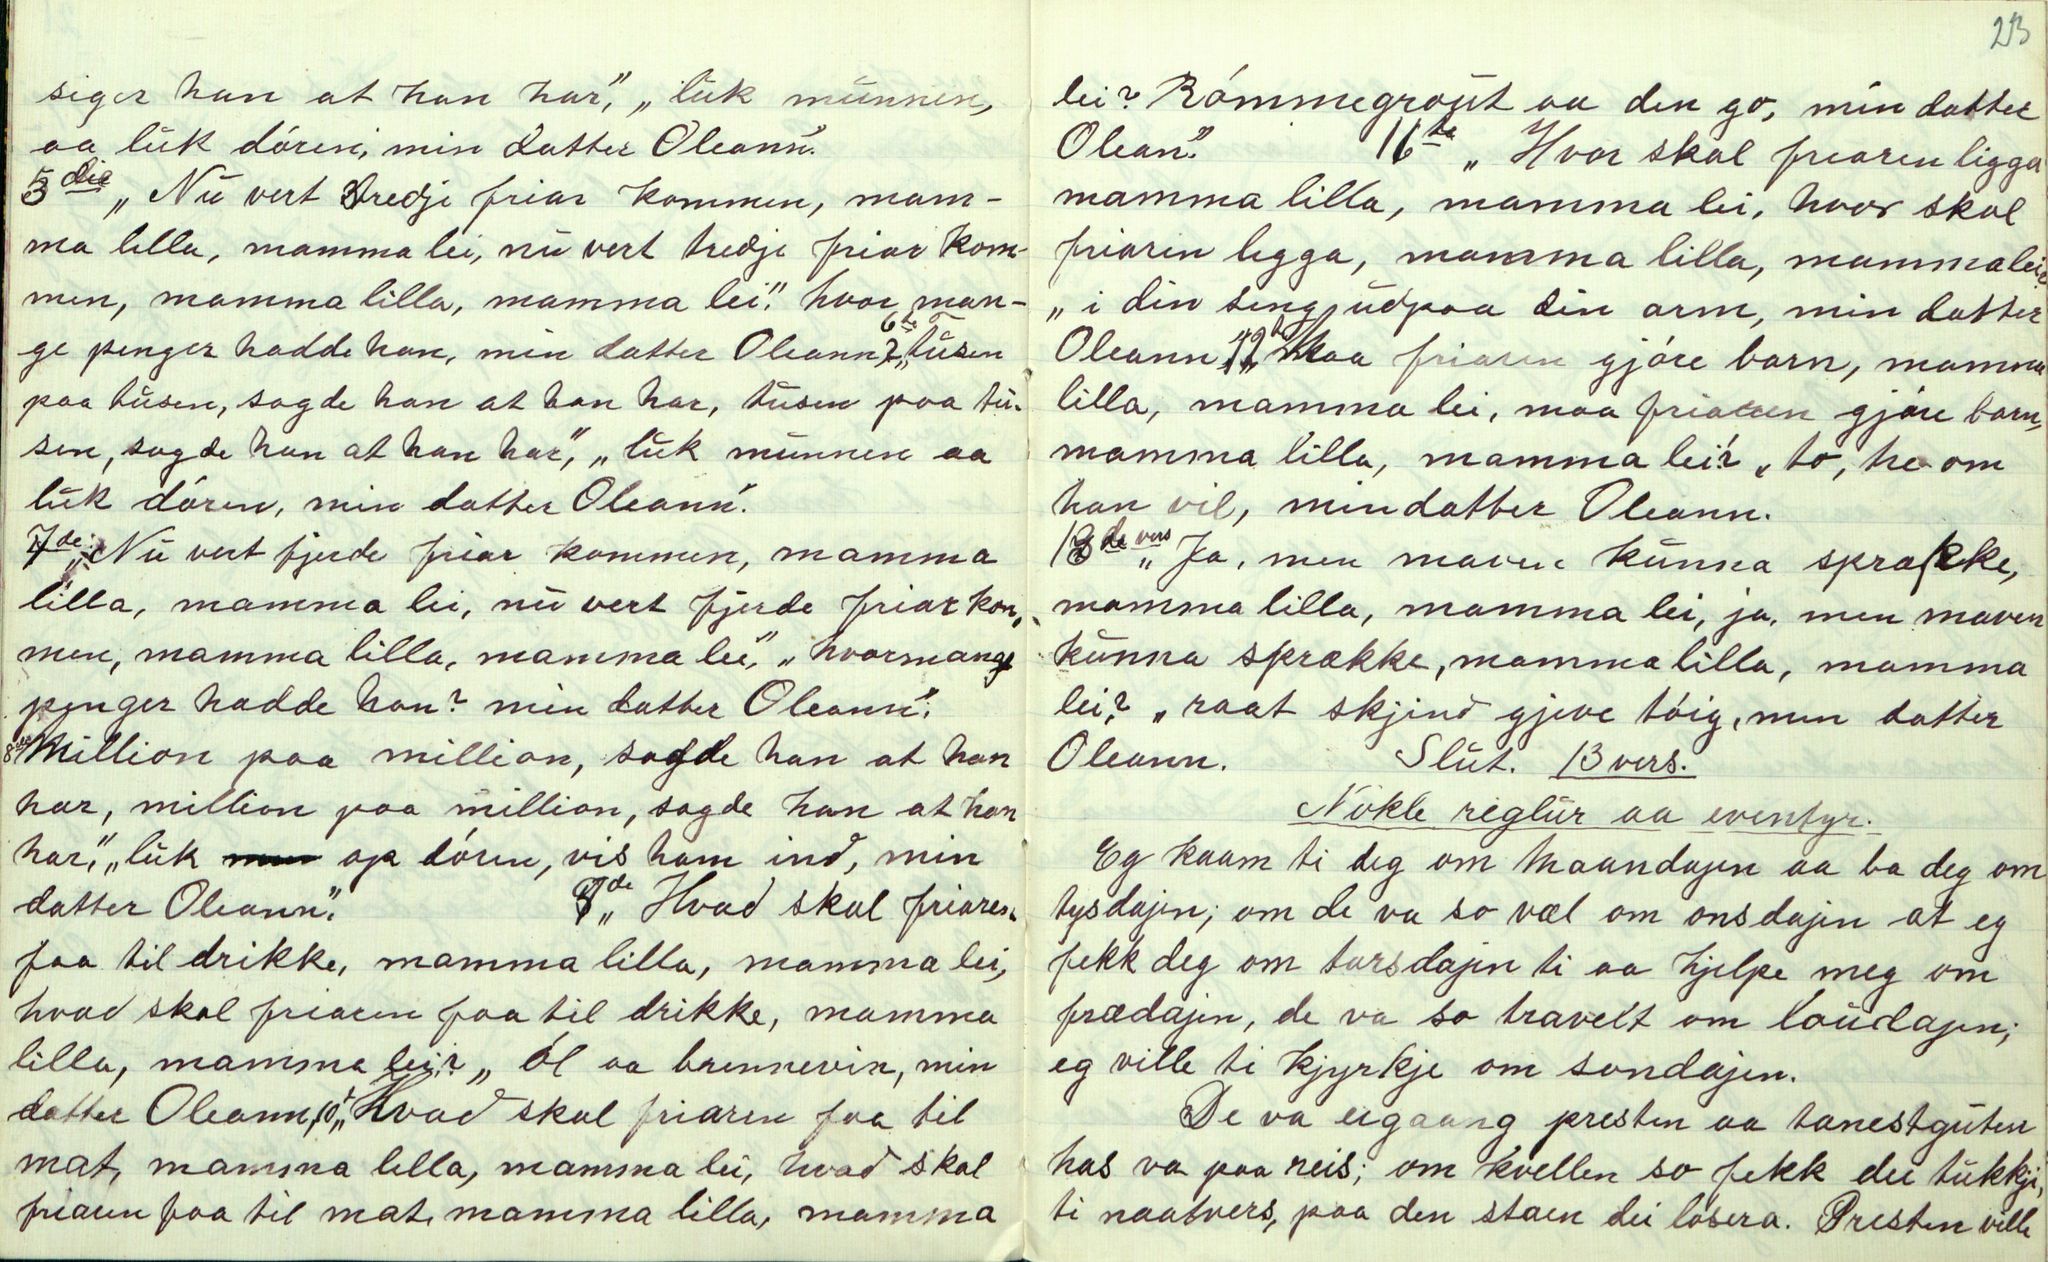 siger han at han har," „luk munnen,
aa luk dóren, min datter Oleann".
5die „Nu vert tredje friar kommen, mam-
ma lilla, mamma lei, nu vert tredje friar kom-
men, mamma lilla, mamma lei". hvor man-
ge penger hadde han, min datter Oleann? 6te „tusen
paa tusen, sagde han at han har, tusen paa tu-
sen, sagde han at han har," „luk munnen aa
luk dóren, min datter Oleann".
7de „Nu vert fjerde friar kommen, mamma
lilla, mamma lei, nu vert fjerde friar kom-
men, mamma lilla, mamma lei," „hvormange
penger hadde han? min datter Oleann".
8de Million paa million, sagde han at han
har, million paa million, sagde han at han
har," „luk op dóren, vis ham ind, min
datter Oleann". „Hvad skal friaren
faa til drikke, mamma lilla, mamma lei,
hvad skal friaren faa til drikke, mamma
lilla, mamma lei? „ Ól aa brennevin, min
datter Oleann, 10d „Hvad skal friaren faa til
mat, mamma lilla, mamma lei, hvad skal
friaren faa til mat, mamma lilla, mamma
23
lei? Rómmegraut aa den go, min datter
Olean". 11te „Hvor skal friaren ligga
mamma lilla, mamma lei, hvor skal
friaren ligga, mamma lilla, mamma lei?
„ i din seng, udpaa din arm, min datter
Oleann. 12d „Maa friaren gjóre barn, mamma
lilla, mamma lei, maa friaren gjóre barn,
mamma lilla, mamma lei? „ to, tre om
han vil, min datter Oleann.
13de vers „ Ja, men maven kunna sprække,
mamma lilla, mamma lei, ja, men maven
kunna sprække, mamma lilla, mamma
lei? „ raat skjind gjeve tóig, min datter
Oleann. Slut. 13 vers.
Nokle reglur aa eventyr.
Eg kaam ti deg om maandajen aa ba deg om
tysdajen; om de va so væl om onsdajen at eg
fekk deg om torsdajen ti aa hjelpe meg om
frædajen, de va so travelt om loudajen;
eg ville ti kjyrkje om sondajen.
De va eigaang presten aa tanestguten
has va paa reis; om kvellen so fekk dei tukkji,
ti naatvers, paa den staen dei losera. Presten ville